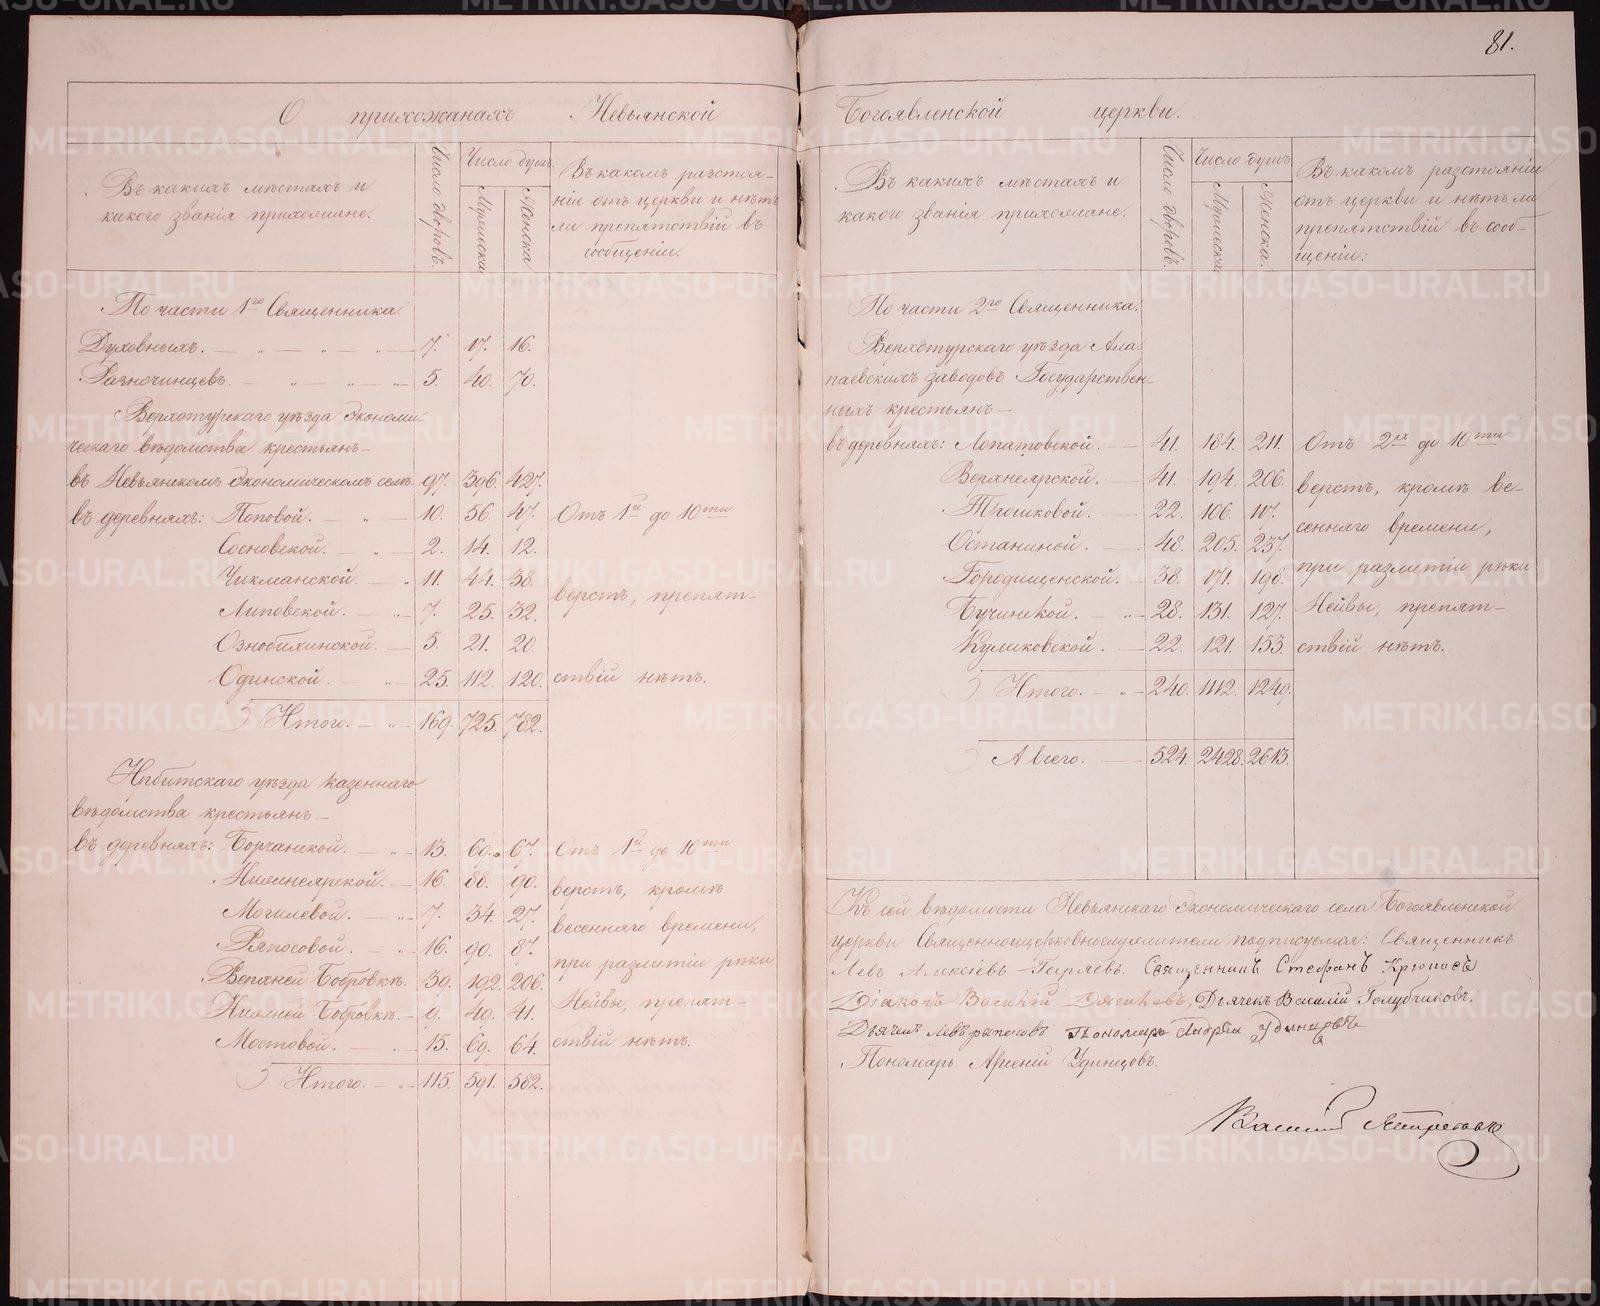 81.
О прихожанахъ Невьянской Богоявленской церкви.
Въ какихъ мѣстахъ и какого званія прихожане.
Число дворовъ.
Число душъ.
Мужеска
Женска
Въ какомъ разстоя-
ніи отъ церкви и нѣтъ
ли препятствій въ
сообщеніи.
По части 1го Священника
Духовныхъ. — „ — „ — „ — 7. 17. 16.
Разночинцевъ. — „ — „ — „ 5. 40. 70.
Верхотурскаго уѣзда экономи-
ческаго вѣдомства крестьянъ —
въ Невьянскомъ экономическомъ селѣ. 97. 396. 427.
въ деревняхъ: Поповой. — „ — 10. 56. 47.
Сосновской. — „ — 2. 14. 12.
Чикманской. — „ 11. 44. 38.
Липовской. — „ 7. 25. 32.
Ознобихинской. — 5. 21. 20.
Одинской. — „ — 25. 112. 120.
Итого. — „ — 169. 725. 782.
Отъ 1й до 10ти
верстъ, препят-
ствій нѣтъ.
Ирбитскаго уѣзда казеннаго
вѣдомства крестьянъ —
въ деревняхъ: Борчанской. — „ — 13. 69. 67.
Нижнеярской. — 16. 88. 90.
Могилевой. — „ 7. 34. 27.
Ряпосовой. — „ 16. 90. 87.
Верхней Бобровкѣ. 39. 192. 206.
Нижней Бобровкѣ. — 9. 49. 41.
Мостовой. — „ 15. 69. 64.
Итого. — „ 115. 591. 582.
Отъ 1й до 10ти
верстъ, кромѣ
весенняго времени,
при разлитіи рѣки
Нейвы, препят-
ствій нѣтъ.
Въ какихъ мѣстахъ и
какого званія прихожане.
Число дворовъ.
Число душъ.
Мужеска
Женска.
Въ какомъ разстояніи
отъ церкви и нѣтъ ли
препятствій въ сооб-
щеніи:
По части 2го Священника.
Верхотурскаго уѣзда Ала-
паевскихъ заводовъ Государствен-
ныхъ крестьянъ —
въ деревняхъ: Лопатовской. — 41. 184. 211.
Верхнеярской. — 41. 194. 206.
Ярошковой. — 22. 106. 117.
Останиной. — 48. 205. 237.
Городищенской. — 38. 171. 198.
Бучинской. — „ 28. 131. 127.
Куликовской. — 22. 121. 153.
Итого. — „ — 240. 1112. 1249.
А всего. — 524. 2428. 2613.
Отъ 2хъ до 10ти
верстъ, кромѣ ве-
сенняго времени,
при разлитіи рѣки
Нейвы, препят-
ствій нѣтъ.
Къ сей вѣдомости Невьянскаго экономическаго села Богоявленской
церкви Священноцерковнослужители подписуемся: Священникъ
Левъ Алексіевъ Гаряевъ. Священникъ Стефанъ
Діаконъ Василій Дягилевъ, Дьячекъ Василій Голубчиковъ.
Дьячекъ Левъ Ряпосовъ Пономарь Андрей Удинцовъ
Пономарь Арсеній Удинцовъ.
METRIKI.GASO-URAL.RU